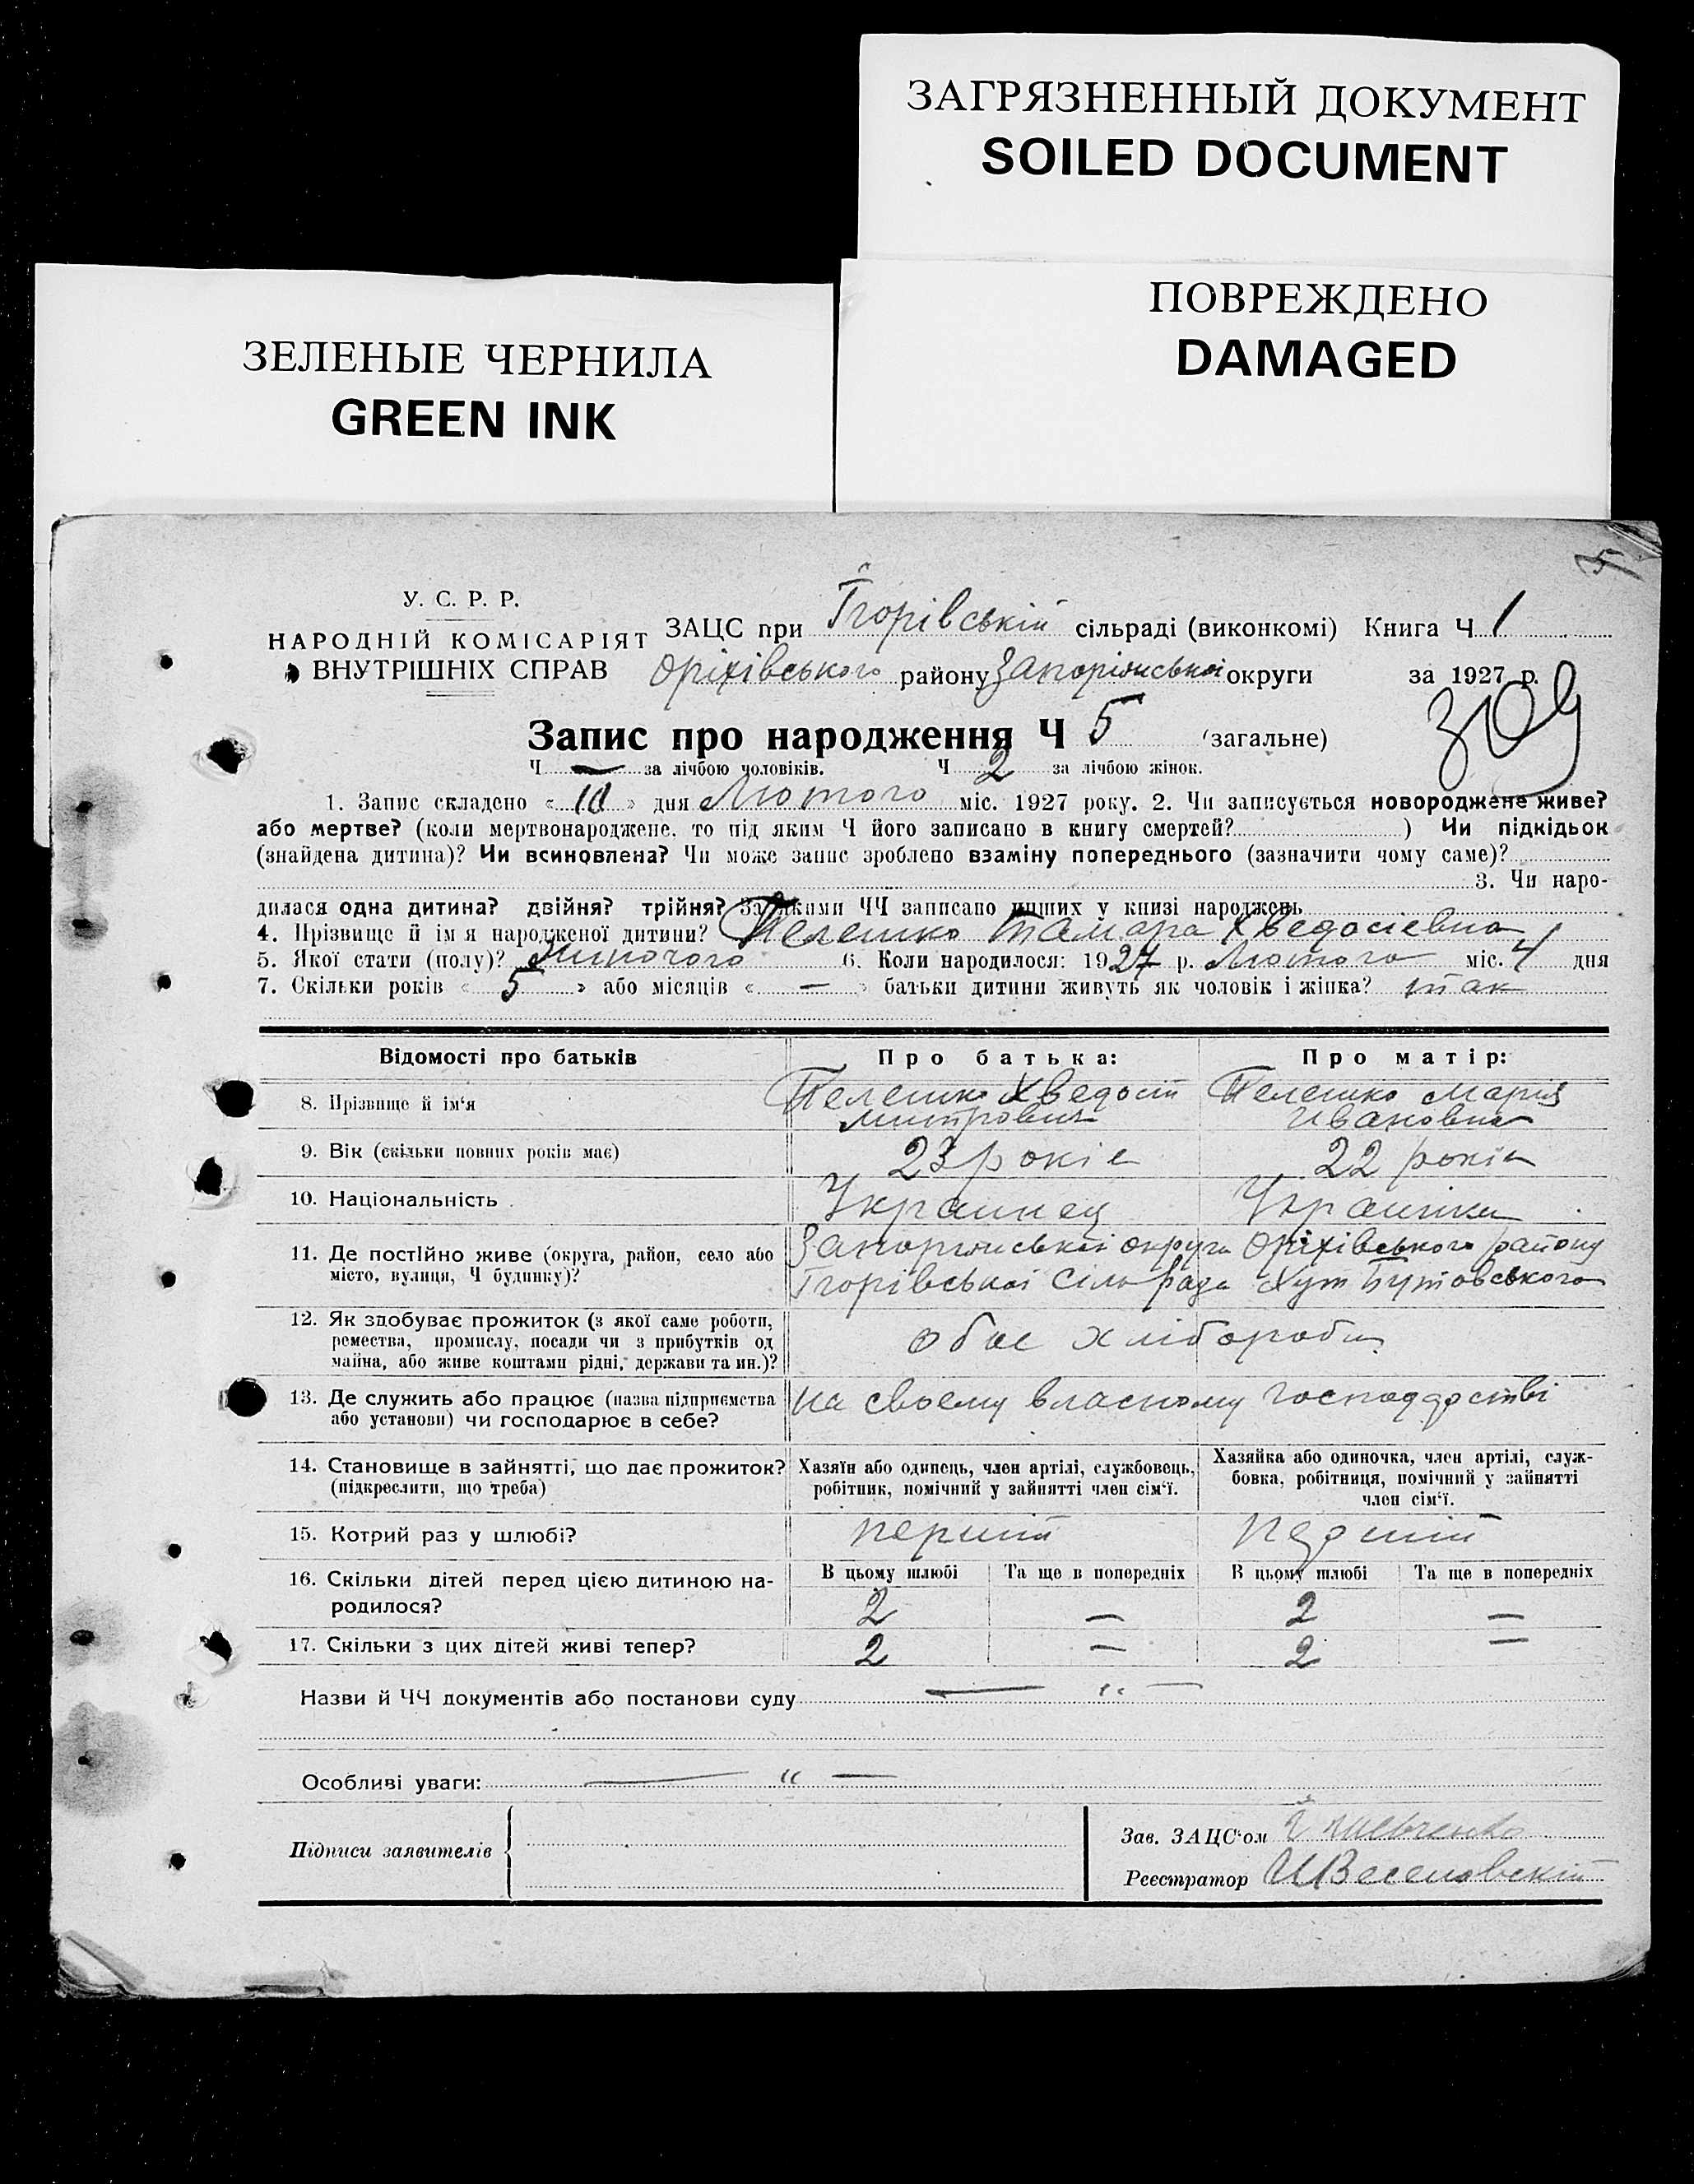 ЗАГРЯЗНЕННЫЙ ДОКУМЕНТ
SOILED DOCUMENT
ПОВРЕЖДЕНО
DAMAGED
ЗЕЛЕНЫЕ ЧЕРНИЛА
GREEN INK
5
У. С. Р. Р.
НАРОДНІЙ КОМІСАРІЯТ
ВНУТРІШНІХ СПРАВ
ЗАЦС при Ігорівській сільраді (виконкомі) Книга Ч 1
Оріхівського району Запоріжської округи за 1927 р.
Запис про народження Ч 5 (загальне)
Ч — за лічбою чоловіків. Ч 2 за лічбою жінок.
1. Запис складено « 10 » дня Лютого міс. 1927 року. 2. Чи записується новороджене живе?
або мертве? (коли мертвонароджене, то під яким Ч його записано в книгу смертей? ) Чи підкідьок
(знайдена дитина)? Чи всиновлена? Чи може запис зроблено взаміну попереднього (зазначити чому саме)?
3. Чи наро-
дилася одна дитина? двійня? трійня? За якими ЧЧ записано инших у книзі народжень
4. Прізвище й ім'я народженої дитини? Пелешко Тамара Хведосіевна
5. Якої стати (полу)? Жіночого 6. Коли народилося: 1927 р. Лютого міс. 4 дня
7. Скільки років « 5 » або місяців « — » батьки дитини живуть як чоловік і жінка? так
Відомості про батьків Про батька: Про матір:
8. Прізвище й ім'я Пелешко Хведосій Митрович Пелешко Мария Ивановна
9. Вік (скільки повних років має) 23 років 22 років
10. Національність Украинец Украінка
11. Де постійно живе (округа, район, село або
місто, вулиця, Ч будинку)?
Запоріжської округи Оріхівського району
Ігорівської Сільради Хут Бутовського
12. Як здобуває прожиток (з якої саме роботи,
ремества, промислу, посади чи з прибутків од
майна, або живе коштами рідні, держави та ин.)?
обое хлібороби
13. Де служить або працює (назва підприємства
або установи) чи господарює в себе?
на своему власному господарстві
14. Становище в зайнятті, що дає прожиток?
(підкреслити, що треба)
Хазяїн або одинець, член артілі, службовець,
робітник, помічний у зайнятті член сім'ї.
Хазяйка або одиночка, член артілі, служ-
бовка, робітниця, помічний у зайнятті
член сім'ї.
15. Котрий раз у шлюбі? перший перший
16. Скільки дітей перед цією дитиною на-
родилося?
В цьому шлюбі Та ще в попередніх В цьому шлюбі Та ще в попередніх
2 — 2 —
17. Скільки з цих дітей живі тепер? 2 — 2 —
Назви й ЧЧ документів або постанови суду — " —
Особливі уваги: — " —
Підписи заявителів
Зав. ЗАЦС'ом
Реєстратор ИВеселовский